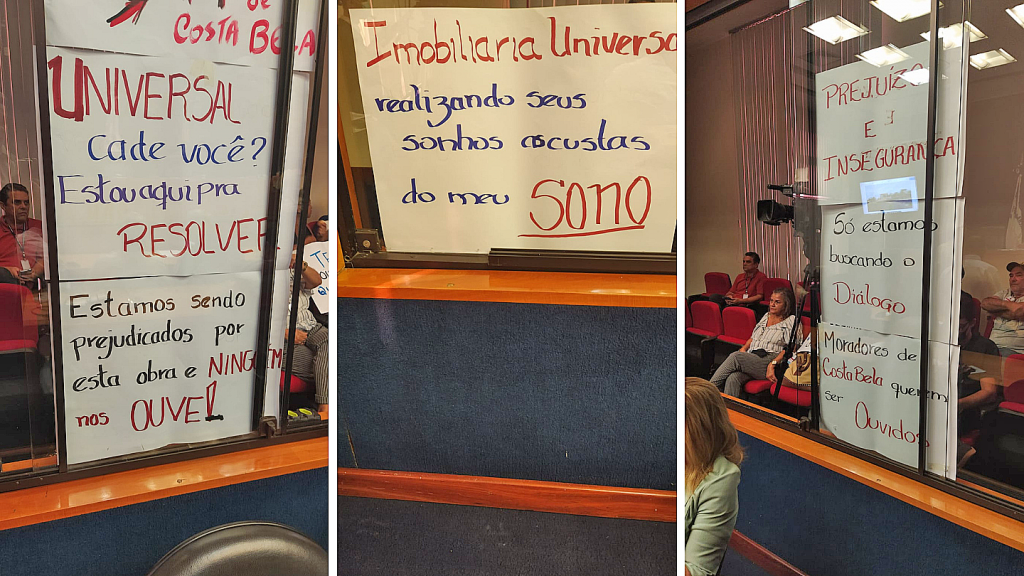 de
COSTA BELA
UNIVERSAL
Cade você?
Estou aqui pra
RESOLVER
Estamos sendo
prejudicados por
esta obra e NINGUEM
nos OUVE!
Imobiliaria Universa
realizando seus
sonhos as custas
do meu SONO
PREJUÍZO
E
INSEGURANÇA
Só estamos
buscando o
Diálogo
Moradores de
Costa Bela querem
ser Ouvidos